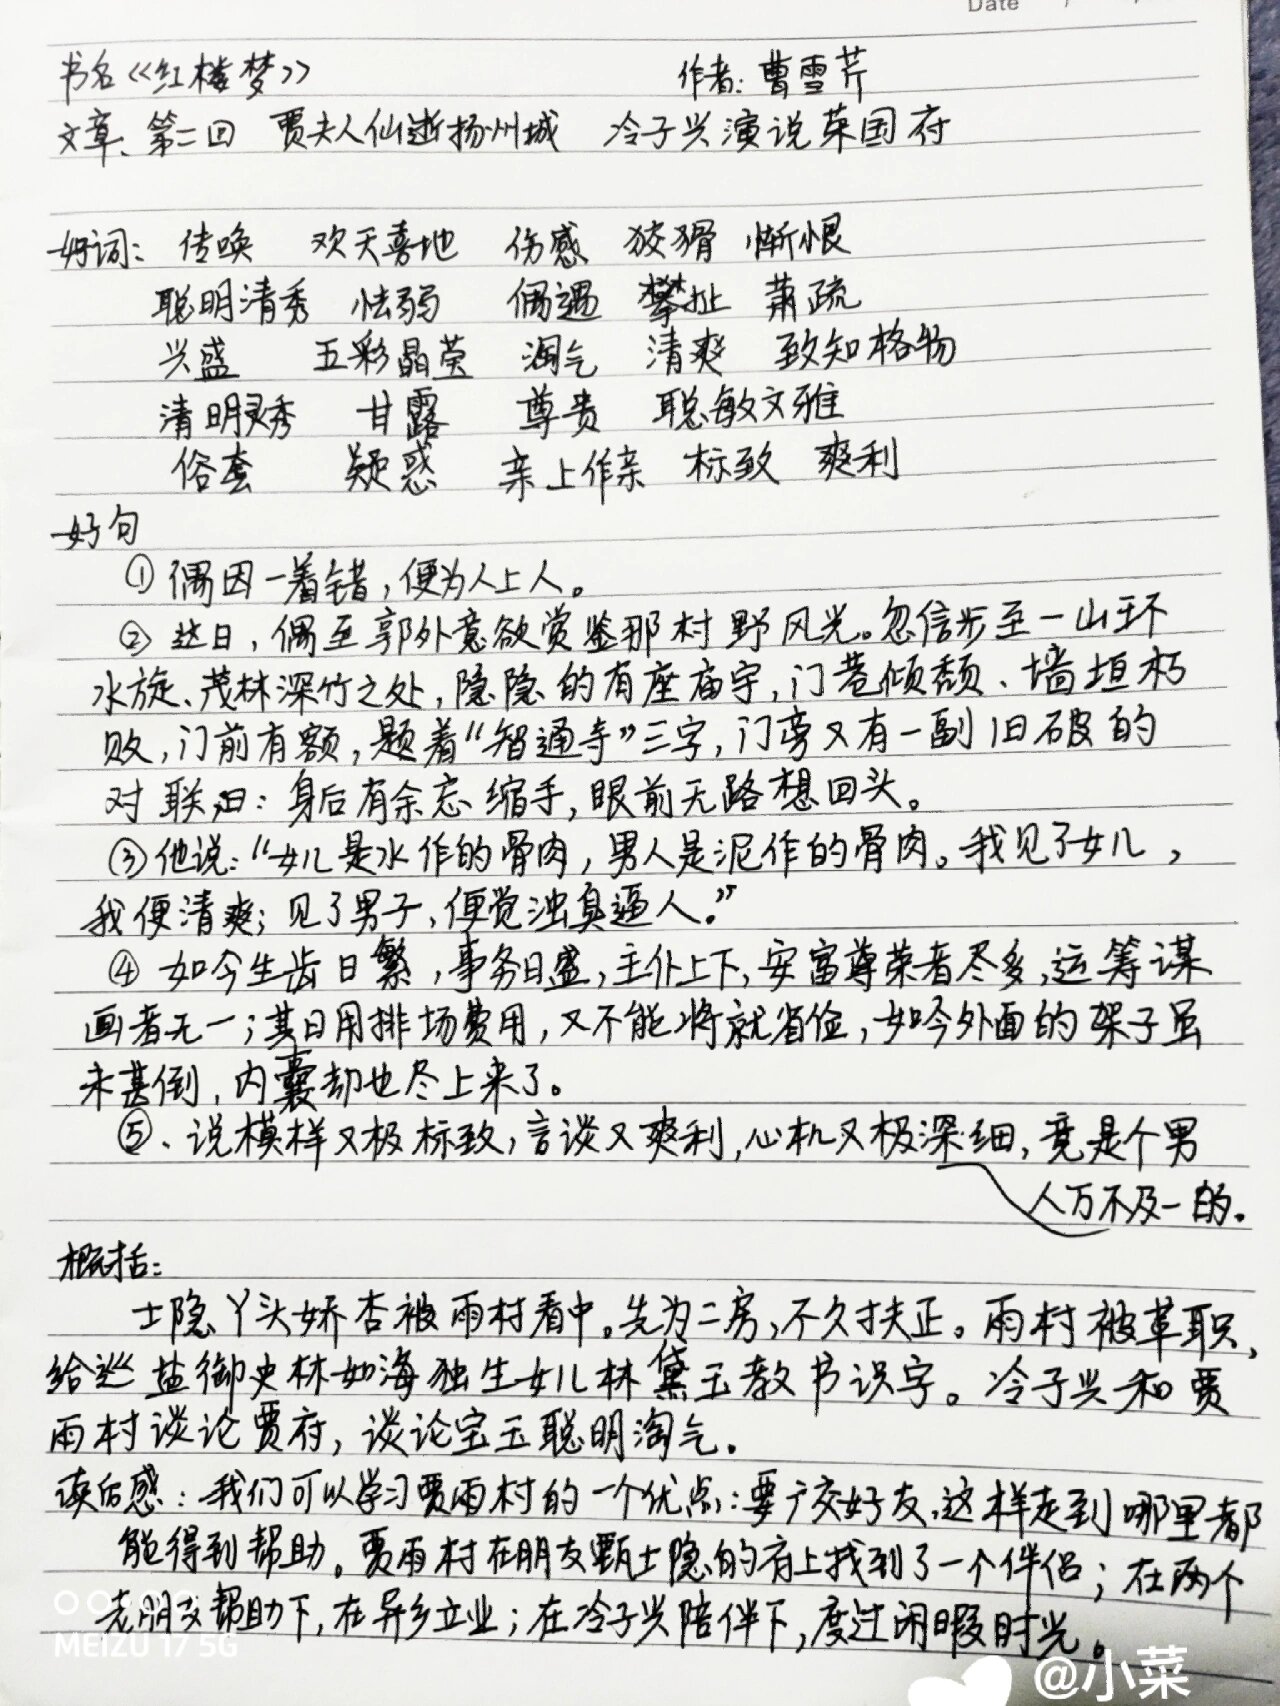 Date
书名《红楼梦》 作者:曹雪芹
文章、第二回 贾夫人仙逝扬州城 冷子兴演说荣国府
好词: 传唤 欢天喜地 伤感 狡猾 惭恨
聪明清秀 怯弱 偶遇 攀扯 萧疏
兴盛 五彩晶莹 淘气 清爽 致知格物
清明灵秀 甘露 尊贵 聪敏文雅
俗套 疑惑 亲上作亲 标致 爽利
好句
①偶因一着错,便为人上人。
②这日,偶至郭外意欲赏鉴那村野风光。忽信步至一山环
水旋、茂林深竹之处,隐隐的有座庙宇,门巷倾颓、墙垣朽
败,门前有额,题着“智通寺”三字,门旁又有一副旧破的
对联,曰:身后有余忘缩手,眼前无路想回头。
③他说:“女儿是水作的骨肉,男人是泥作的骨肉。我见了女儿,
我便清爽;见了男子,便觉浊臭逼人。”
④如今生齿日繁,事务日盛,主仆上下,安富尊荣者尽多,运筹谋
画者无一;其日用排场费用,又不能将就省俭,如今外面的架子虽
未甚倒,内囊却也尽上来了。
⑤、说模样又极标致,言谈又爽利,心机又极深细,竟是个男
人万不及一的。
概括:
士隐丫头娇杏被雨村看中。先为二房,不久扶正。雨村被革职,
给巡盐御史林如海独生女儿林黛玉教书识字。冷子兴和贾
雨村谈论贾府,谈论宝玉聪明淘气。
读后感:我们可以学习贾雨村的一个优点:要广交好友,这样走到哪里都
能得到帮助。贾雨村在朋友甄士隐的府上找到了一个伴侣;在两个
老朋友帮助下,在异乡立业;在冷子兴陪伴下,度过闲暇时光。
MEIZU 17 5G
@小菜